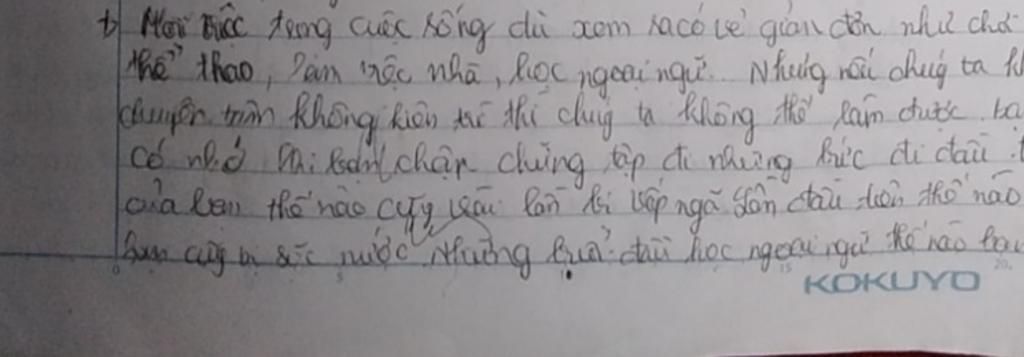 b Mọi việc trong cuộc sống dù xem ra có vẻ giản đơn như chơi
thể thao, làm việc nhà, học ngoại ngữ. Nhưng nếu chúng ta k
chuyên tâm không kiên trì thì chúng ta không thể làm được. bạ
có nhớ khi bạn chập chững tập đi những bước đi đầu t
của bạn thế nào cũng yếu lần bị vấp ngã lần đầu tiên thế nào
bạn cũng bị sặc nước Những buổi đầu học ngoại ngữ thế nào bạn
KOKUYO